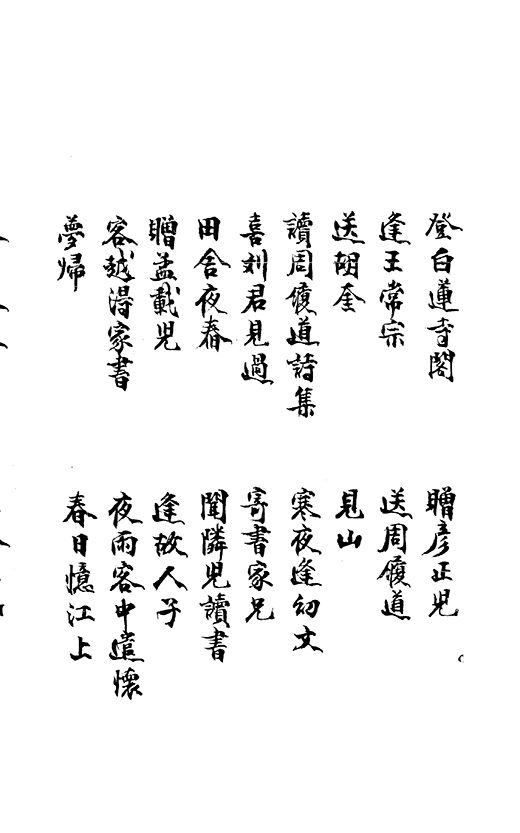 登白蓮寺閣
贈彥正兒
逢王常宗
送周履道
送胡奎
見山
讀周履道詩集
寒夜逢幼文
喜刘君見過
寄書家兄
田舍夜舂
聞隣兒讀書
贈孟載兒
逢故人子
客越得家書
夜雨客中遣懷
夢歸
春日憶江上